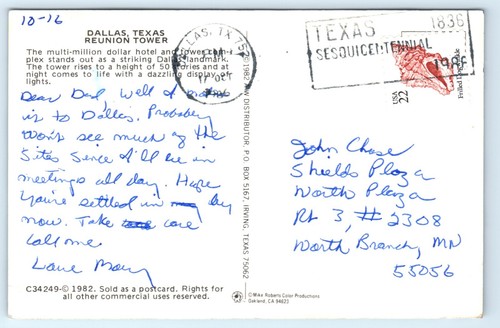 10-16
DALLAS, TEXAS
REUNION TOWER
The multi-million dollar hotel and tower com-
plex stands out as a striking Dallas landmark.
The tower rises to a height of 50 stories and at
night comes to life with a dazzling display of
lights.
Dear Dad, Well I made
it to Dallas. Probably
won't see much of the
sites since I'll be in
meetings all day. Hope
you're settled in by
now. Take care
call me
Love Mary
C34249-© 1982. Sold as a postcard. Rights for
all other commercial uses reserved.
DALLAS, TX 752
PM
17 OCT
© 1982 DISTRIBUTOR, P.O. BOX 5167, IRVING, TEXAS 75062
© Mike Roberts Color Productions
Oakland, CA 94623
TEXAS 1836
SESQUICENTENNIAL
1986
USA
22
Frilled Dogwinkle
John Chase
Shields Plaza
North Plaza
Rt 3, # 2308
North Branch, MN
55056